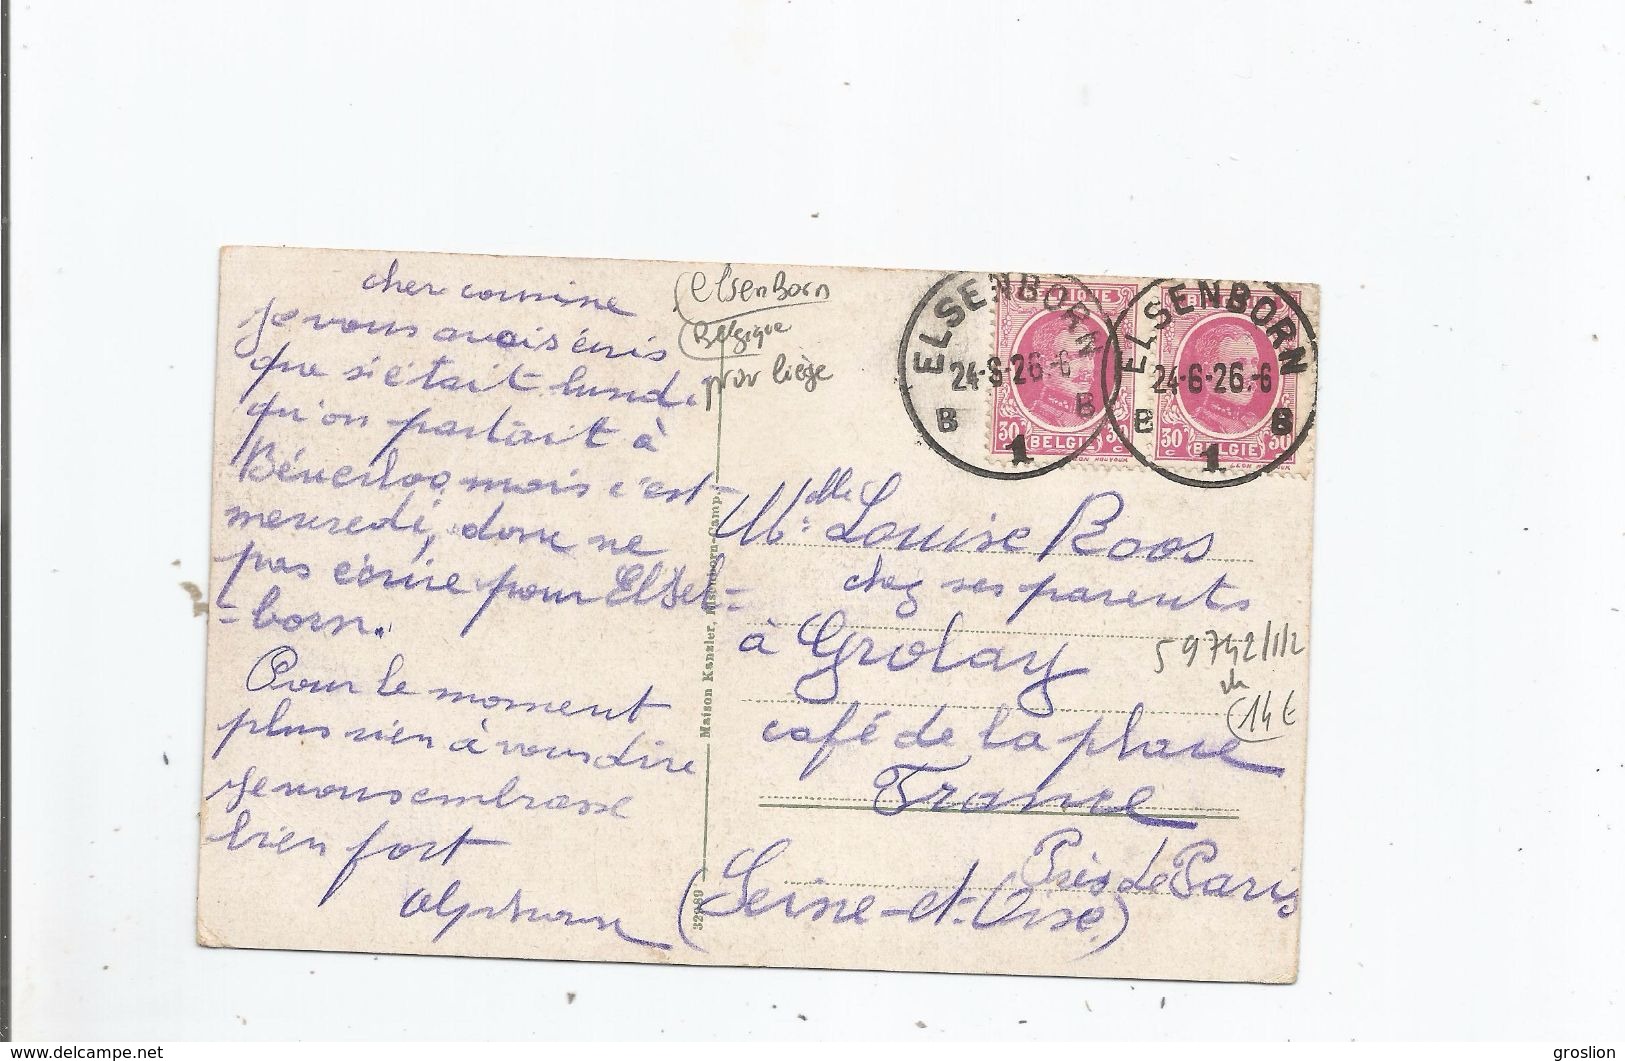 cher cousine
je vous avais écris
que si c'était lundi
qu'on partait à
Béverloo mais c'est
mercredi, donc ne
pas écrire pour Elsen=
=born.
Pour le moment
plus rien à vous dire
je vous embrasse
bien fort
Alphonse
elsenBorn
Belgique
prov liège
Maison Kanzler, Elsenborn-Camp.
32989
ELSENBORN
24-6-26.-6
B 1 B
ELSENBORN
24-6-26.-6
B 1 B
BELGIQUE
30 c BELGIE 30 c
BELGIQUE
30 c BELGIE 30 c
Melle Louise Roos
chez ses parents
à Grolay
café de la place
France
Près de Paris
(Seine-et-Oise)
59742/1/2
14 €
delcampe.net
groslion